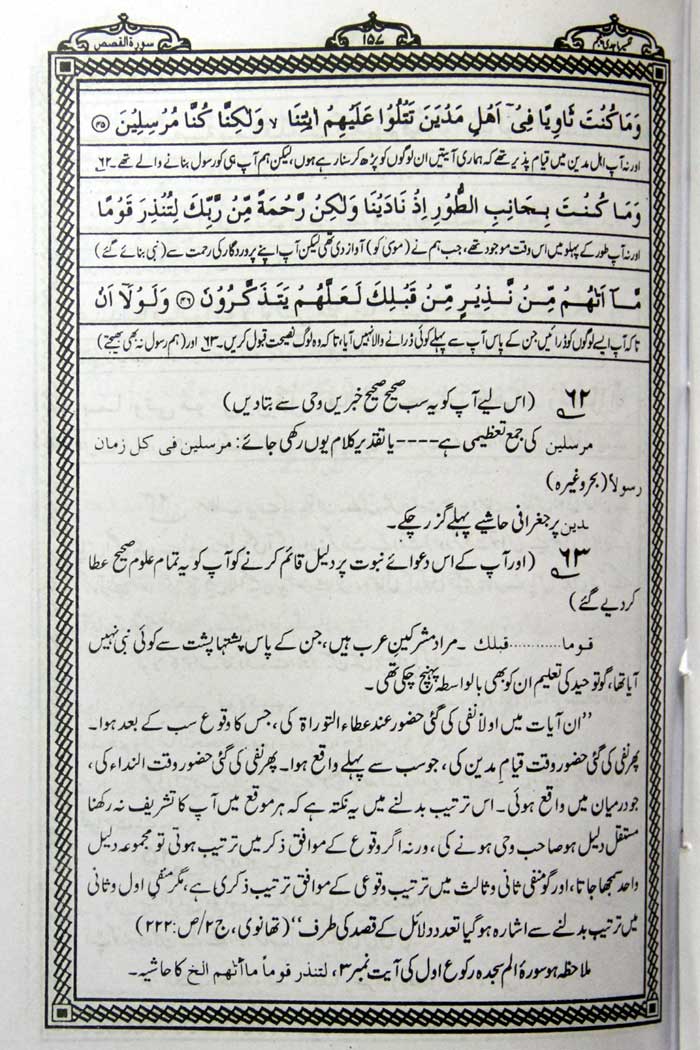 سورۃ القصص ۱۵۷ تفسیر ماجدی ۵
وَمَا كُنْتَ ثَاوِيًا فِيْٓ اَهْلِ مَدْيَنَ تَتْلُوْا عَلَيْهِمْ اٰيٰتِنَا ۙ وَلٰكِنَّا كُنَّا مُرْسِلِيْنَ ﴿۴۵﴾
اور نہ آپ اہل مدین میں قیام پذیر تھے کہ ہماری آیتیں ان لوگوں کو پڑھ کر سنا رہے ہوں، لیکن ہم آپ ہی کو رسول بنانے والے تھے ۶۲
وَمَا كُنْتَ بِجَانِبِ الطُّوْرِ اِذْ نَادَيْنَا وَلٰكِنْ رَّحْمَةً مِّنْ رَّبِّكَ لِتُنْذِرَ قَوْمًا
اور نہ آپ طور کے پہلو میں اس وقت موجود تھے، جب ہم نے (موسیٰ کو) آواز دی تھی لیکن آپ اپنے پروردگار کی رحمت سے (نبی بنائے گئے)
مَّآ اَتٰىهُمْ مِّنْ نَّذِيْرٍ مِّنْ قَبْلِكَ لَعَلَّهُمْ يَتَذَكَّرُوْنَ ﴿۴۶﴾ وَلَوْلَآ اَنْ
تا کہ آپ ایسے لوگوں کو ڈرائیں جن کے پاس آپ سے پہلے کوئی ڈرانے والا نہیں آیا، تا کہ وہ لوگ نصیحت قبول کریں۔ ۶۳ اور (ہم رسول نہ بھی بھیجتے)
۶۲ (اس لیے آپ کو یہ سب صحیح صحیح خبریں وحی سے بتا دیں)
مرسلین کی جمع تعظیمی ہے ---- یا تقدیر کلام یوں رکھی جائے: مرسلین فی کل زمان
رسولاً (بحر وغیرہ)
مدین پر جغرافی حاشیے پہلے گزر چکے۔
۶۳ (اور آپ کے اس دعوائے نبوت پر دلیل قائم کرنے کو آپ کو یہ تمام علوم صحیح عطا
کر دیے گئے)
قوما............قبلك ۔ مراد مشرکین عرب ہیں، جن کے پاس پشتہا پشت سے کوئی نبی نہیں
آیا تھا، گو توحید کی تعلیم ان کو بھی بالواسطہ پہنچ چکی تھی۔
”ان آیات میں اولاً نفی کی گئی حضور عند عطاء التوراۃ کی، جس کا وقوع سب کے بعد ہوا۔
پھر نفی کی گئی حضور وقت قیام مدین کی، جو سب سے پہلے واقع ہوا۔ پھر نفی کی گئی حضور وقت النداء کی،
جو درمیان میں واقع ہوئی۔ اس ترتیب بدلنے میں یہ نکتہ ہے کہ ہر موقع میں آپ کا تشریف نہ رکھنا
مستقل دلیل ہو صاحب وحی ہونے کی، ورنہ اگر وقوع کے موافق ذکر میں ترتیب ہوتی تو مجموعہ دلیل
واحد سمجھا جاتا، اور گو منفی ثانی و ثالث میں ترتیب وقوعی کے موافق ترتیب ذکری ہے، مگر منفی اول و ثانی
میں ترتیب بدلنے سے اشارہ ہو گیا تعدد دلائل کے قصد کی طرف“ (تھانوی، ج ۲/ص: ۲۲۲)
ملاحظہ ہو سورۂ الم سجدہ رکوع اول کی آیت نمبر ۳، لتنذر قوماً ما أتهم الخ کا حاشیہ۔